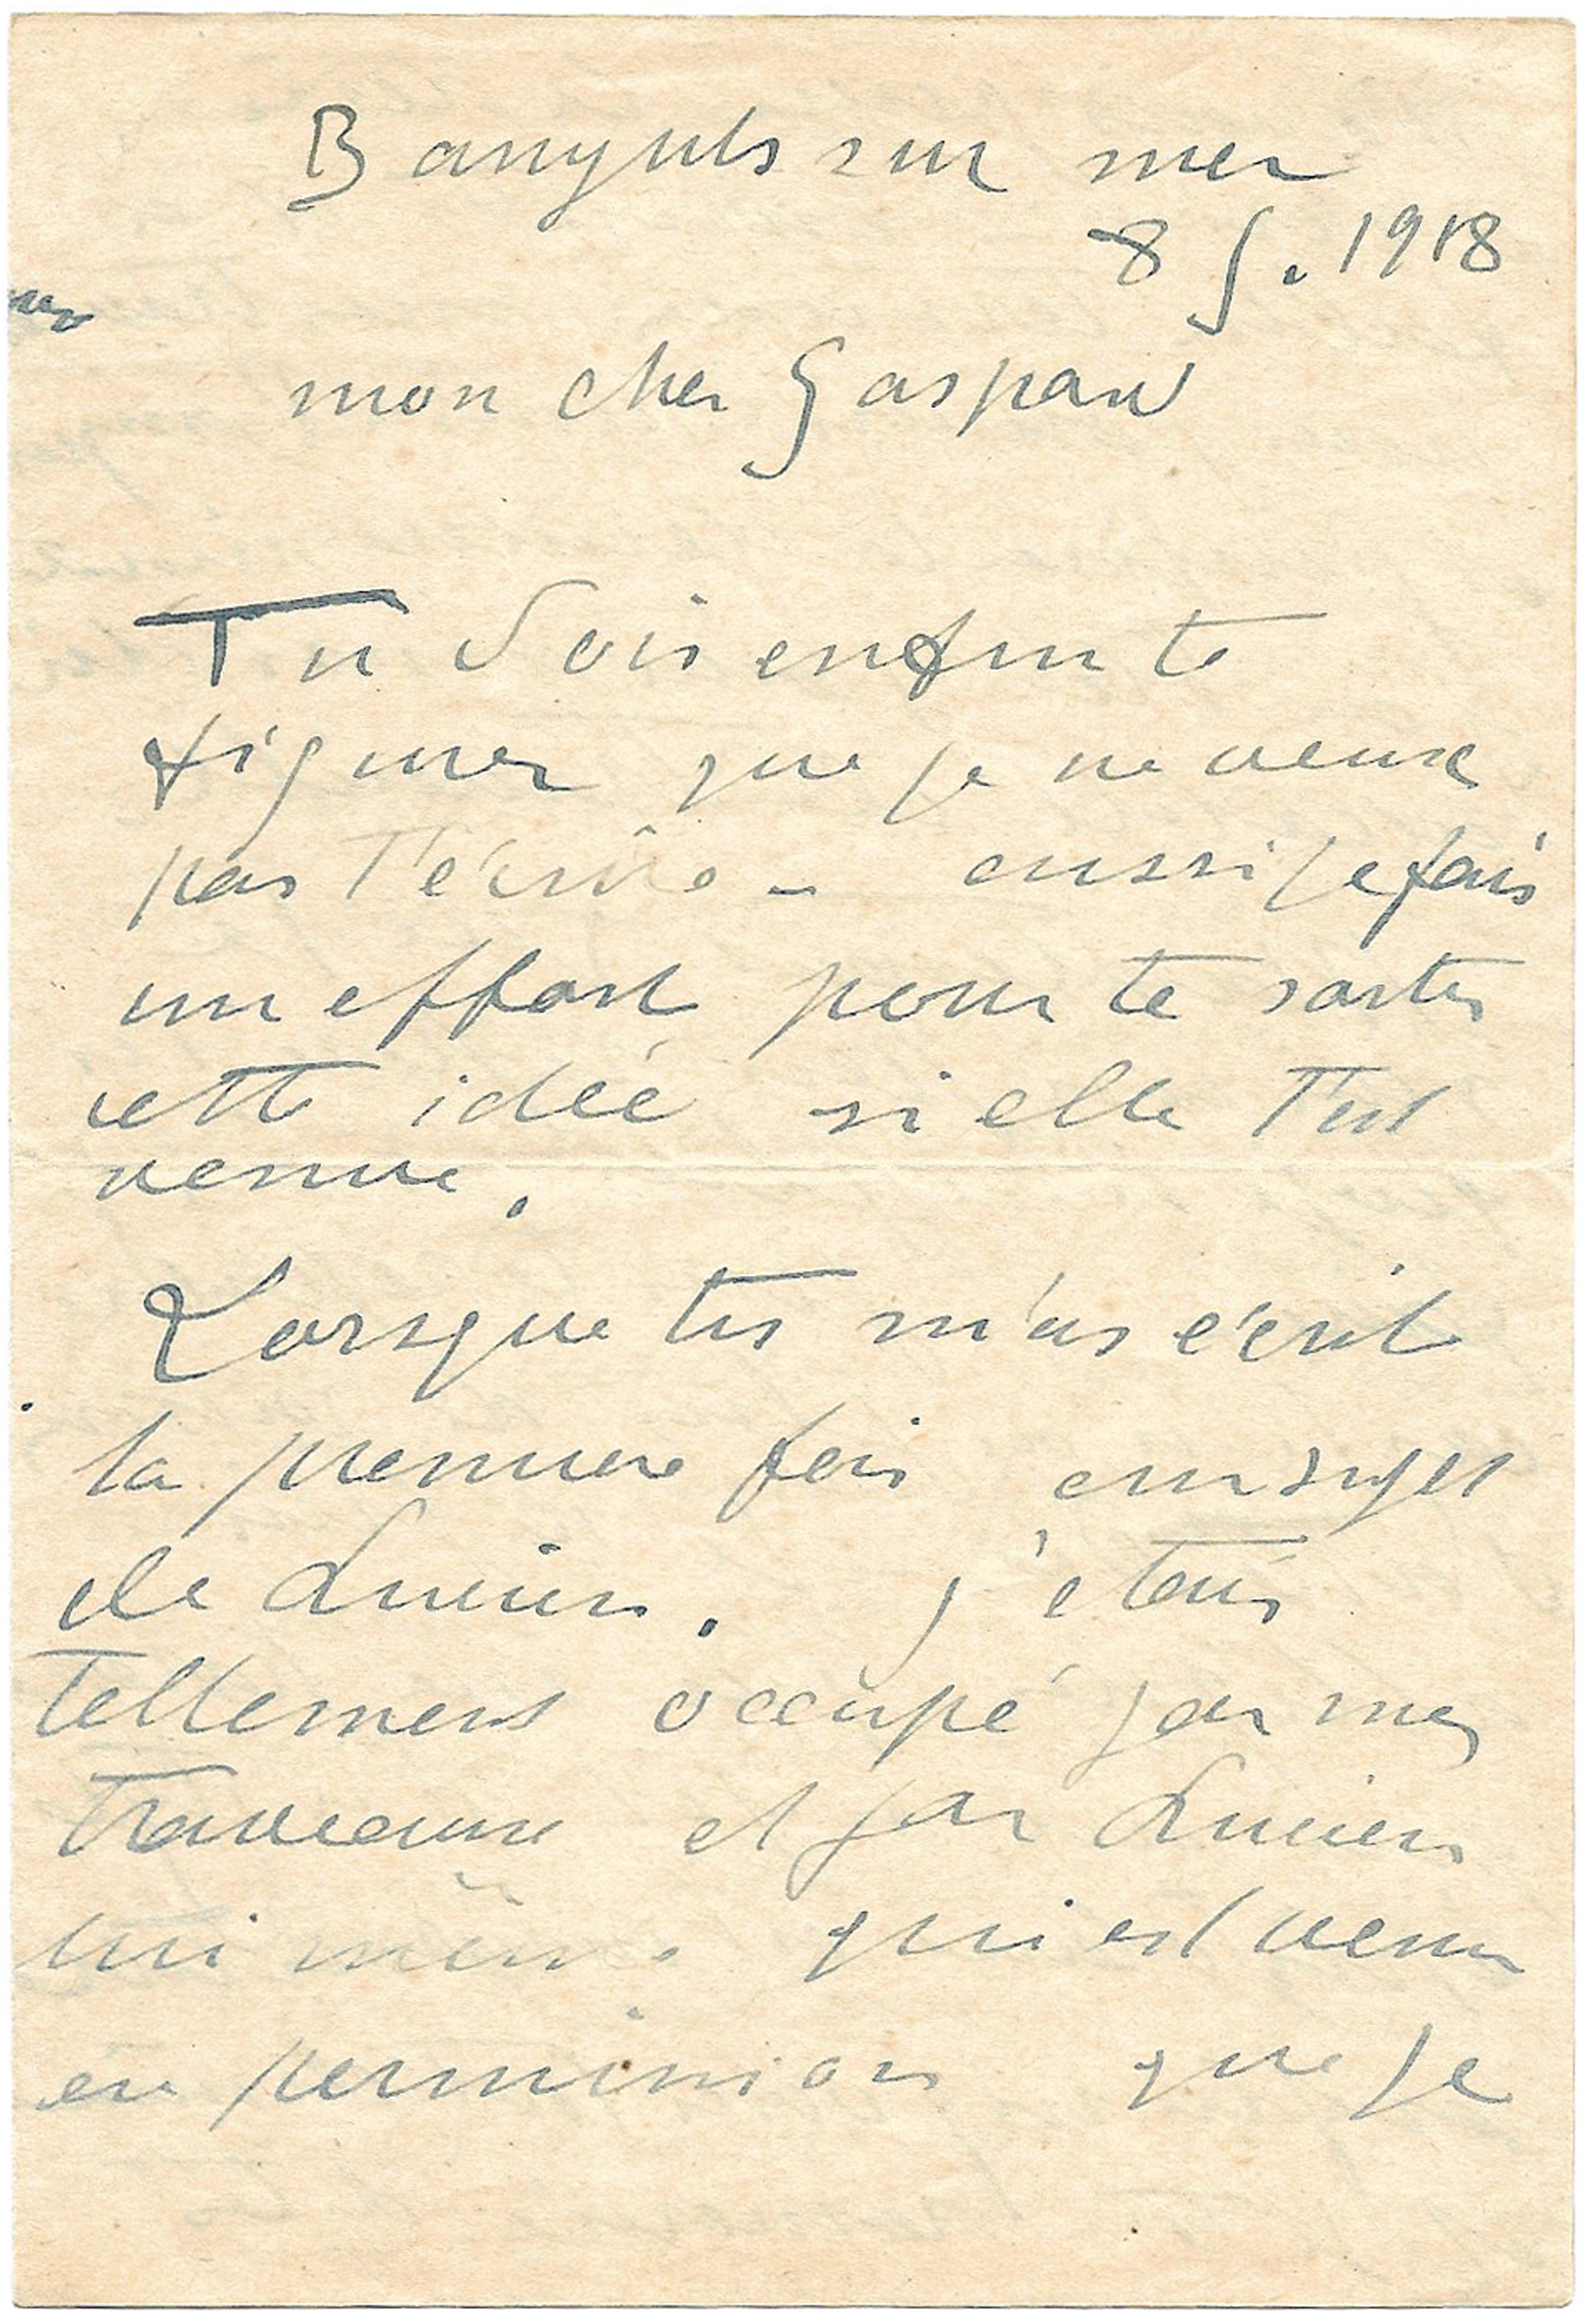 Banyuls sur mer
8 J. 1918
mon cher Gaspard
Tu dois enfin te
figurer que je ne veux
pas t'écrîre - aussi je fais
un effort pour te sortir
cette idée si elle t'est
venue.
Lorsque tu m'as écrit
la premiere fois au sujet
de Lucien. j'étais
tellement occupé par mes
travaux et par Lucien
lui même qui est venu
en permission que je